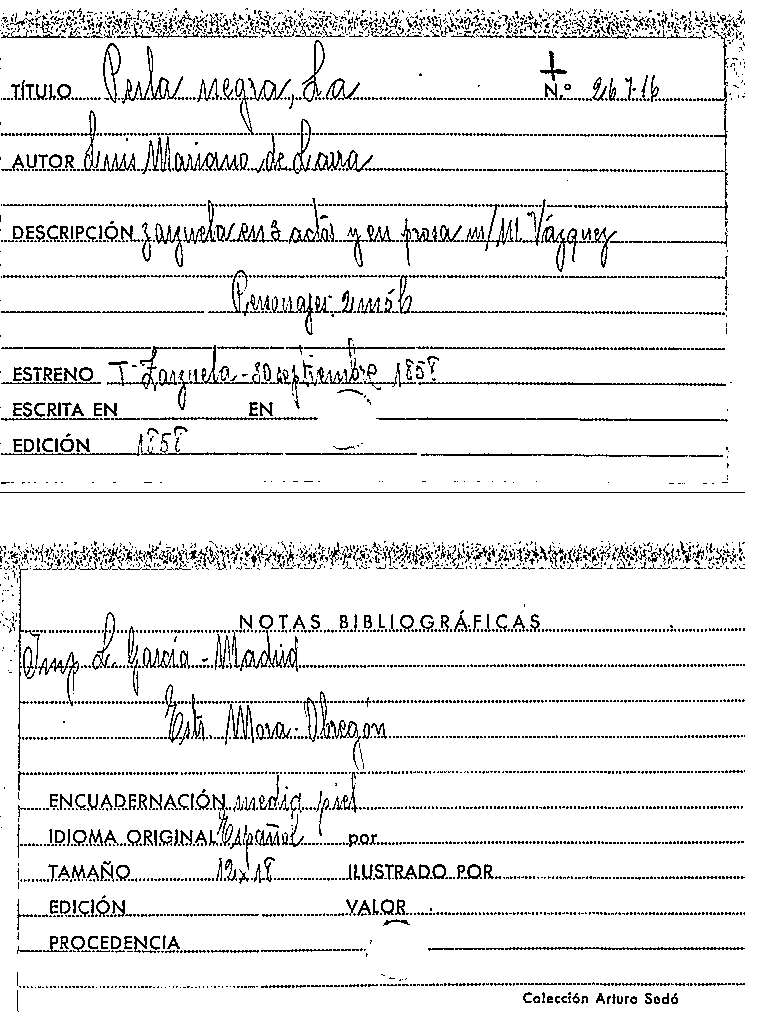 TÍTULO Perla negra, La N.º 267-16
AUTOR Luis Mariano de Larra
DESCRIPCIÓN zarzuela en 3 actos y en prosa m/ M. Vázquez
Personajes: 2m 5h
ESTRENO Tº Zarzuela - 30 septiembre 1858
ESCRITA EN EN
EDICIÓN 1858
NOTAS BIBLIOGRÁFICAS
Imp L. García - Madrid
Estr. Mora - Obregón
ENCUADERNACIÓN media piel
IDIOMA ORIGINAL Español por
TAMAÑO 12x18 ILUSTRADO POR
EDICIÓN VALOR
PROCEDENCIA
Colección Arturo Sedó